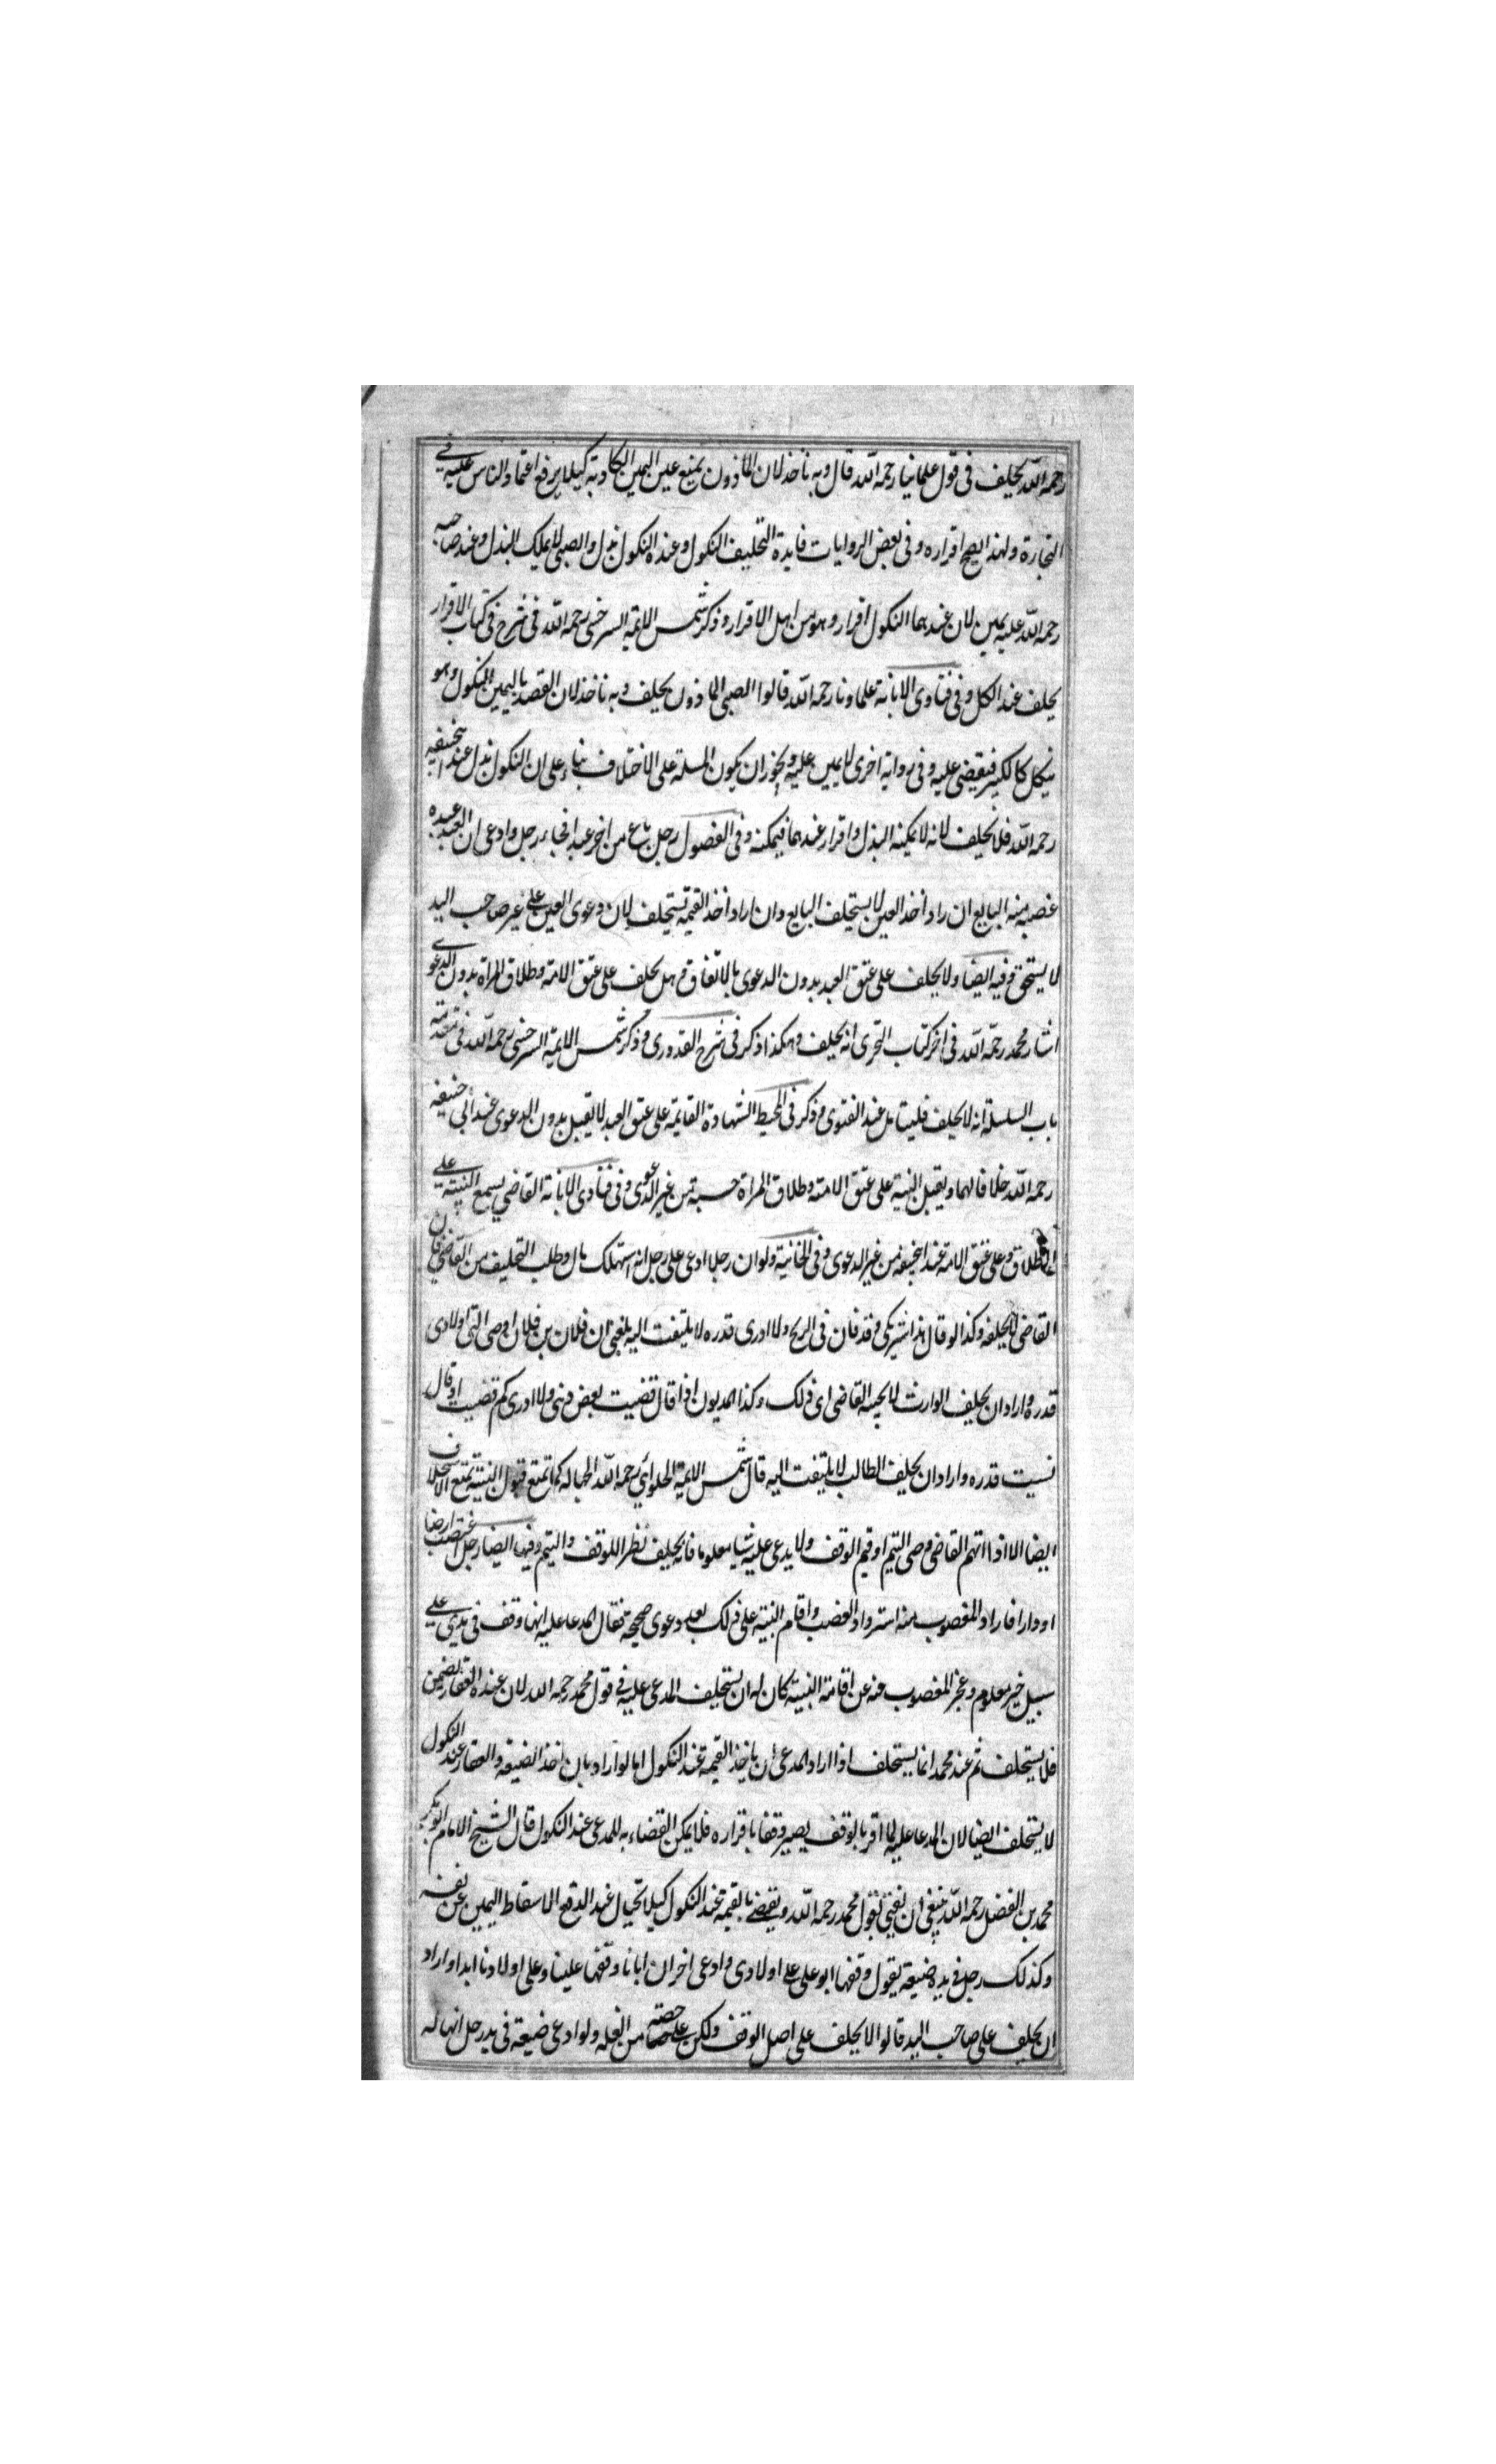 رحمه الله يحلف فى قول علمائنا رحمه الله قال وبه ناخذ لان الماذون يمتنع عن اليمين الكاذبة كيلا يرفع اعتماد الناس عليه فى
التجارة ولهذا يصح اقراره وفى بعض الروايات فايدة التحليف النكول وعنده النكول بذل والصبى لا يملك البذل وعند صاحبيه
رحمه الله عليه يمين لان عندهما النكول اقرار وهو من اهل الاقرار وذكر شمس الايمة السرخسى رحمه الله فى شرح فى كتاب الاقرار
يحلف عند الكل وفى فتاوى الابانة علماونا رحمه الله قالوا الصبى الماذون يحلف وبه ناخذ لان القصد باليمين النكول وهو
ينكل كالكبير فيقضى عليه وفى رواية اخرى لا يمين عليه ويجوز ان يكون المسلة على الاختلاف بناء على ان النكول بذل عند ابيحنيفه
رحمه الله فلا يحلف لانه لا يمكنه البذل واقرار عندهما فيمكنه وفى الفصول رجل باع من اخر عبدا فجاء رجل وادعى ان العبد عبده
غصبه منه البايع ان راد اخذ العين لا يستحلف البايع وان اراد اخذ القيمة يستحلف لان دعوى العين على غير صاحب اليد
لا يستحق وفيه ايضا ولا يحلف على عتق العبد بدون الدعوى بالاتفاق وهل يحلف على عتق الامة وطلاق المراة بدون الدعوى
اشار محمد رحمه الله فى اخر كتاب التحرى انه يحلف وهكذا ذكر فى شرح القدورى وذكر شمس الايمة السرخسى رحمه الله فى مقدمة
باب السلسلة انه لا يحلف فليتامل عند الفتوى وذكر فى المحيط الشهادة القايمة على عتق العبد لا يقبل بدون الدعوى عند ابى حنيفه
رحمه الله خلافا لهما ويقبل البينة على عتق الامة وطلاق المراة حسبة من غير الدعوى وفى فتاوى الابانة القاضى يسمع البينة على
الطلاق وعلى عتق الامة عند ابيحنيفه من غير الدعوى وفى الخانية ولو ان رجلا ادعى على رجل انه استهلك مال وطلب التحليف من القاضى فان
القاضى لا يحلفه وكذا لو قال هذا شريكى وقد خان فى الربح ولا ادرى قدره لا يلتفت اليه بلغنى ان فلان بن فلان اوصى الى ولا ادرى
قدره واراد ان يحلف الوارث لا يجيبه القاضى اى ذلك وكذا المديون اذا قال قضيت بعض دينى ولا ادرى كم قضيت او قال
نسيت قدره واراد ان يحلف الطالب لا يلتفت اليه قال شمس الايمة الحلوائي رحمه الله الجهالة كما تمنع قبول البينة تمنع الاستحلاف
ايضا الا اذا اتهم القاضى وصى اليتيم او قيم الوقف ولا يدعى عليه شيا معلوما فانه يحلف نظرا للوقف واليتيم وفيه ايضا رجل غصب ارضا
او دارا فاراد المغصوب منه استرداد الغصب واقام البينة على ذلك بعد دعوى صحيحة فقال المدعا عليه انها وقف فى يدي على
سبيل خير معلوم وعجز المغصوب منه عن اقامة البينة كان له ان يستحلف المدعى عليه فى قول محمد رحمه الله لان عنده العقار يضمن
فلا يستحلف ثم عند محمد انما يستحلف اذا اراد المدعى ان ياخذ القيمة عند النكول اما لو اراد بان اخذ الضيعة والعقار عند النكول
لا يستحلف ايضا لان المدعا عليه لما اقر بالوقف يصير وقفا باقراره فلا يمكن القضاء به للمدعى عند النكول قال الشيخ الامام ابو بكر
محمد بن الفضل رحمه الله ينبغى ان يفتى بقول محمد رحمه الله ويقضى بالقيمة عند النكول كيلا يحتال عند الدفع الاسقاط اليمين عن نفسه
وكذلك رجل فى يده ضيعة يقول وقفها ابو على على اولادى وادعى اخر ان ابانا وقفها علينا وعلى اولادنا ابدا واراد
ان يحلف على صاحب اليد قالوا لا يحلف على اصل الوقف ولكن على حصته من الغلة ولو ادعى ضيعة فى يد رجل انها له